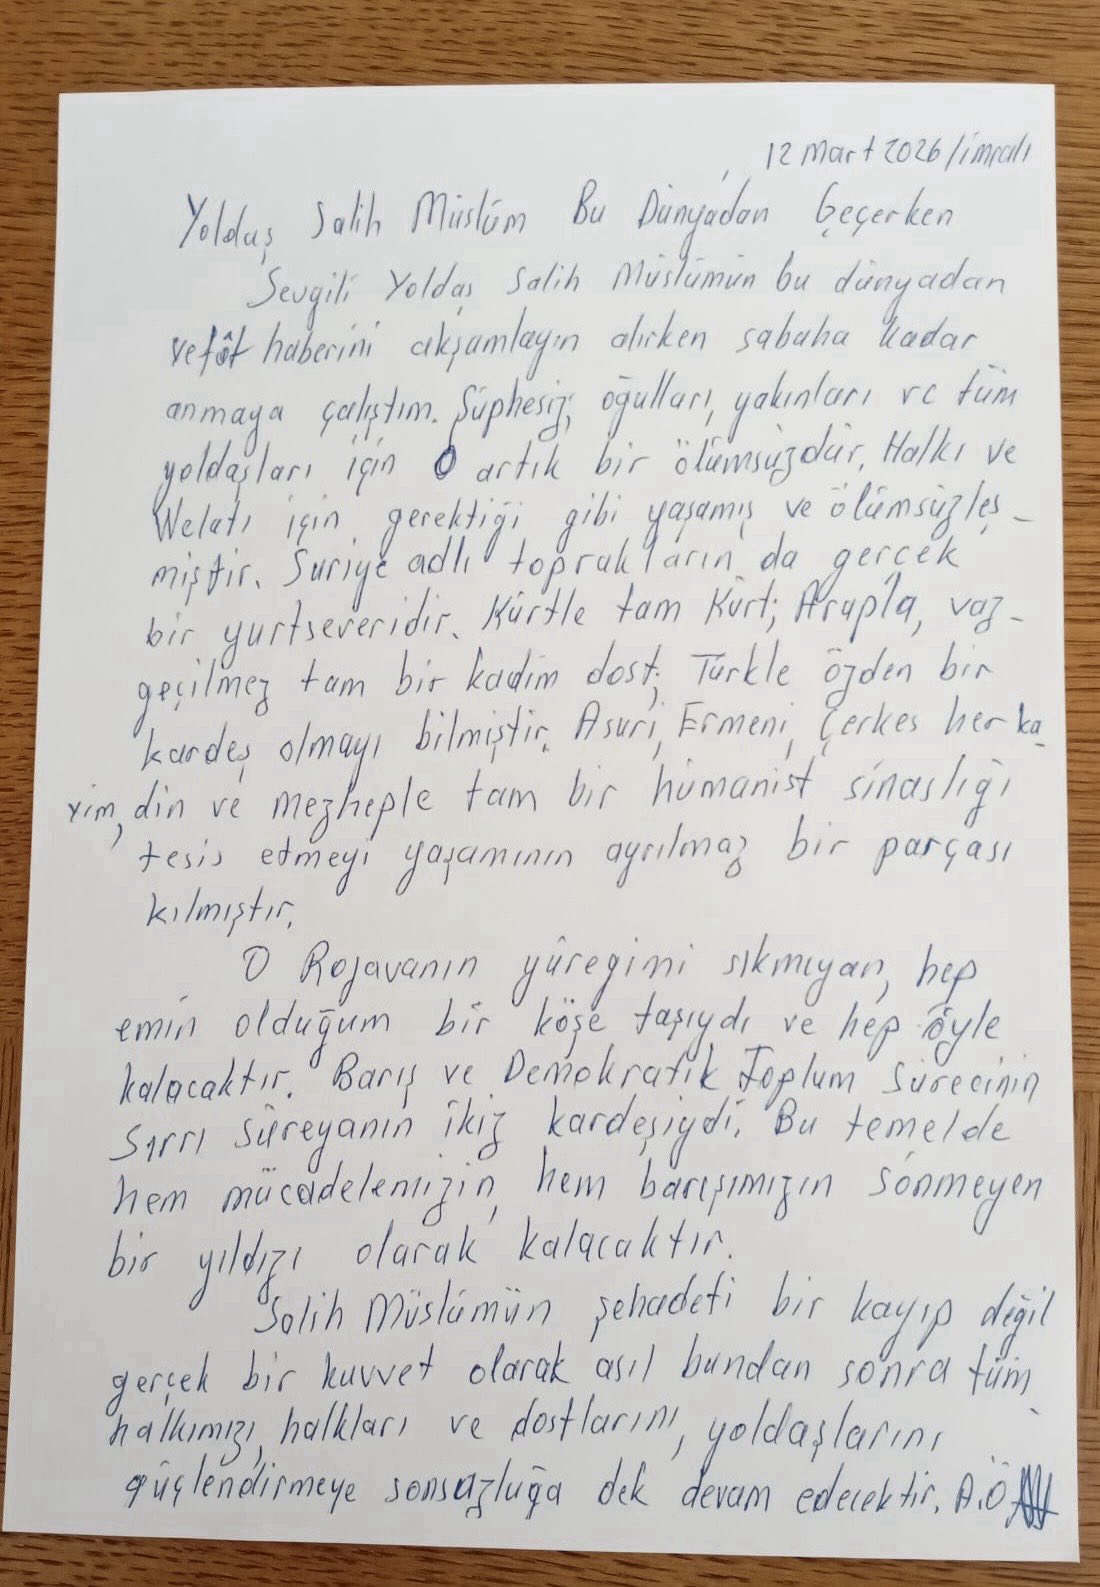 12 Mart 2026/imralı
Yoldaş Salih Müslüm Bu Dünyadan Geçerken
Sevgili Yoldaş Salih Müslümün bu dünyadan
vefât haberini akşamlayın alırken sabaha kadar
anmaya çalıştım. Şüphesiz, oğulları, yakınları ve tüm
yoldaşları için O artık bir ölümsüzdür. Halkı ve
Welatı için gerektiği gibi yaşamış ve ölümsüzleş-
miştir. Suriye adlı toprakların da gerçek
bir yurtseveridir. Kürtle tam Kürt; Arapla, vaz-
geçilmez tam bir kadim dost; Türkle özden bir
kardeş olmayı bilmiştir. Asuri, Ermeni, Çerkes her ka-
vim, din ve mezheple tam bir hümanist sinaslığı
tesis etmeyi yaşamının ayrılmaz bir parçası
kılmıştır.
O Rojavanın yüregimi sıkmıyan, hep
emin olduğum bir köşe taşıydı ve hep öyle
kalacaktır. Barış ve Demokratik Toplum Sürecinin
Sırrı Süreyanın ikiz kardeşiydi. Bu temelde
hem mücadelemizin, hem barışımızın sönmeyen
bir yıldızı olarak kalacaktır.
Salih Müslümün şehadeti bir kayıp değil
gerçek bir kuvvet olarak asıl bundan sonra tüm
halkımızı, halkları ve dostlarını, yoldaşlarını
güçlendirmeye sonsuzluğa dek devam edecektir. A.Ö